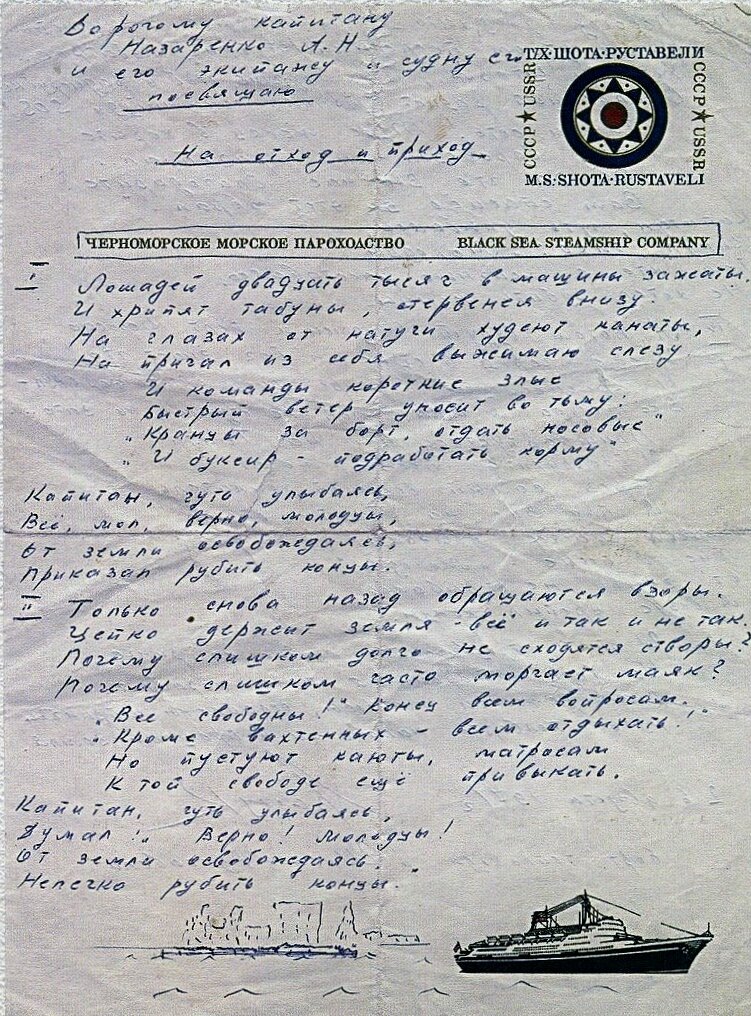 Дорогому капитану
Назаренко А. Н.
и его экипажу и судну его
посвящаю
На отход и приход
Т/Х·ШОТА·РУСТАВЕЛИ
СССР ★ USSR
СССР ★ USSR
M.S·SHOTA·RUSTAVELI
ЧЕРНОМОРСКОЕ МОРСКОЕ ПАРОХОДСТВО BLACK SEA STEAMSHIP COMPANY
I Лошадей двадцать тысяч в машины зажаты.
И хрипят табуны, стервенея внизу.
На глазах от натуги худеют канаты,
На причал из себя выжимаю слезу
И команды короткие злые
Быстрый ветер уносит во тьму:
"Кранцы за борт, отдать носовые"
"И буксир - подработать корму"
Капитан, чуть улыбаясь,
Всё, мол, верно, молодцы,
От земли освобождаясь,
Приказал рубить концы.
II Только снова назад обращаются взоры.
Цепко держит земля - всё и так и не так.
Почему слишком долго не сходятся створы?
Почему слишком часто моргает маяк?
"Все свободны!" Конец всем вопросам.
"Кроме вахтенных - всем отдыхать!"
Но пустуют каюты, матросам
К той свободе ещё привыкать.
Капитан, чуть улыбаясь,
Думал: "Верно! Молодцы!
От земли освобождаясь.
Нелегко рубить концы."